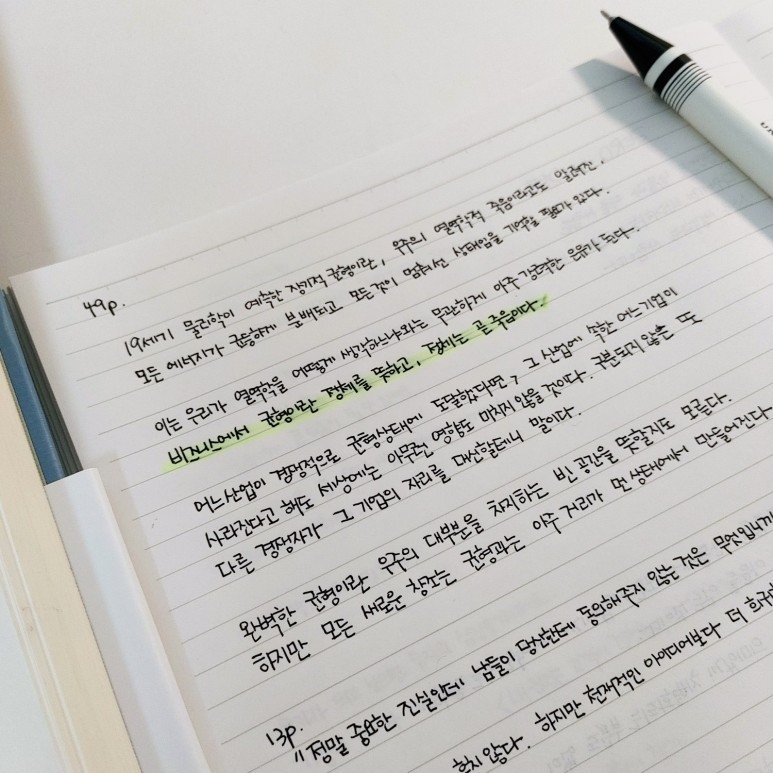 49p.
19세기 물리학이 예측한 장기적 균형이란, 우주의 열역학적 죽음이라고도 알려진,
모든 에너지가 균등하게 분배되고 모든것이 멈춰선 상태임을 기억할 필요가 있다.
이는 우리가 열역학을 어떻게 생각하느냐와는 무관하게 아주 강력한 은유가 된다.
비즈니스에서 균형이란 정체를 뜻하고, 정체는 곧 죽음이다.
어느산업이 경쟁적으로 균형상태에 도달했다면, 그 산업에 속한 어느기업이
사라진다고 해도 세상에는 아무런 영향도 미치지 않을 것이다. 구분되지 않는 또
다른 경쟁자가 그 기업의 자리를 대신할테니 말이다.
완벽한 균형이란 우주의 대부분을 차지하는 빈 공간을 뜻할지도 모른다.
하지만 모든 새로운 창조는 균형과는 아주 거리가 먼 상태에서 만들어진다
13p.
"정말 중요한 진실인데 남들이 당신한테 동의해주지 않는 것은 무엇입니까
하지 않다. 하지만 천재적인 아이디어보다 더